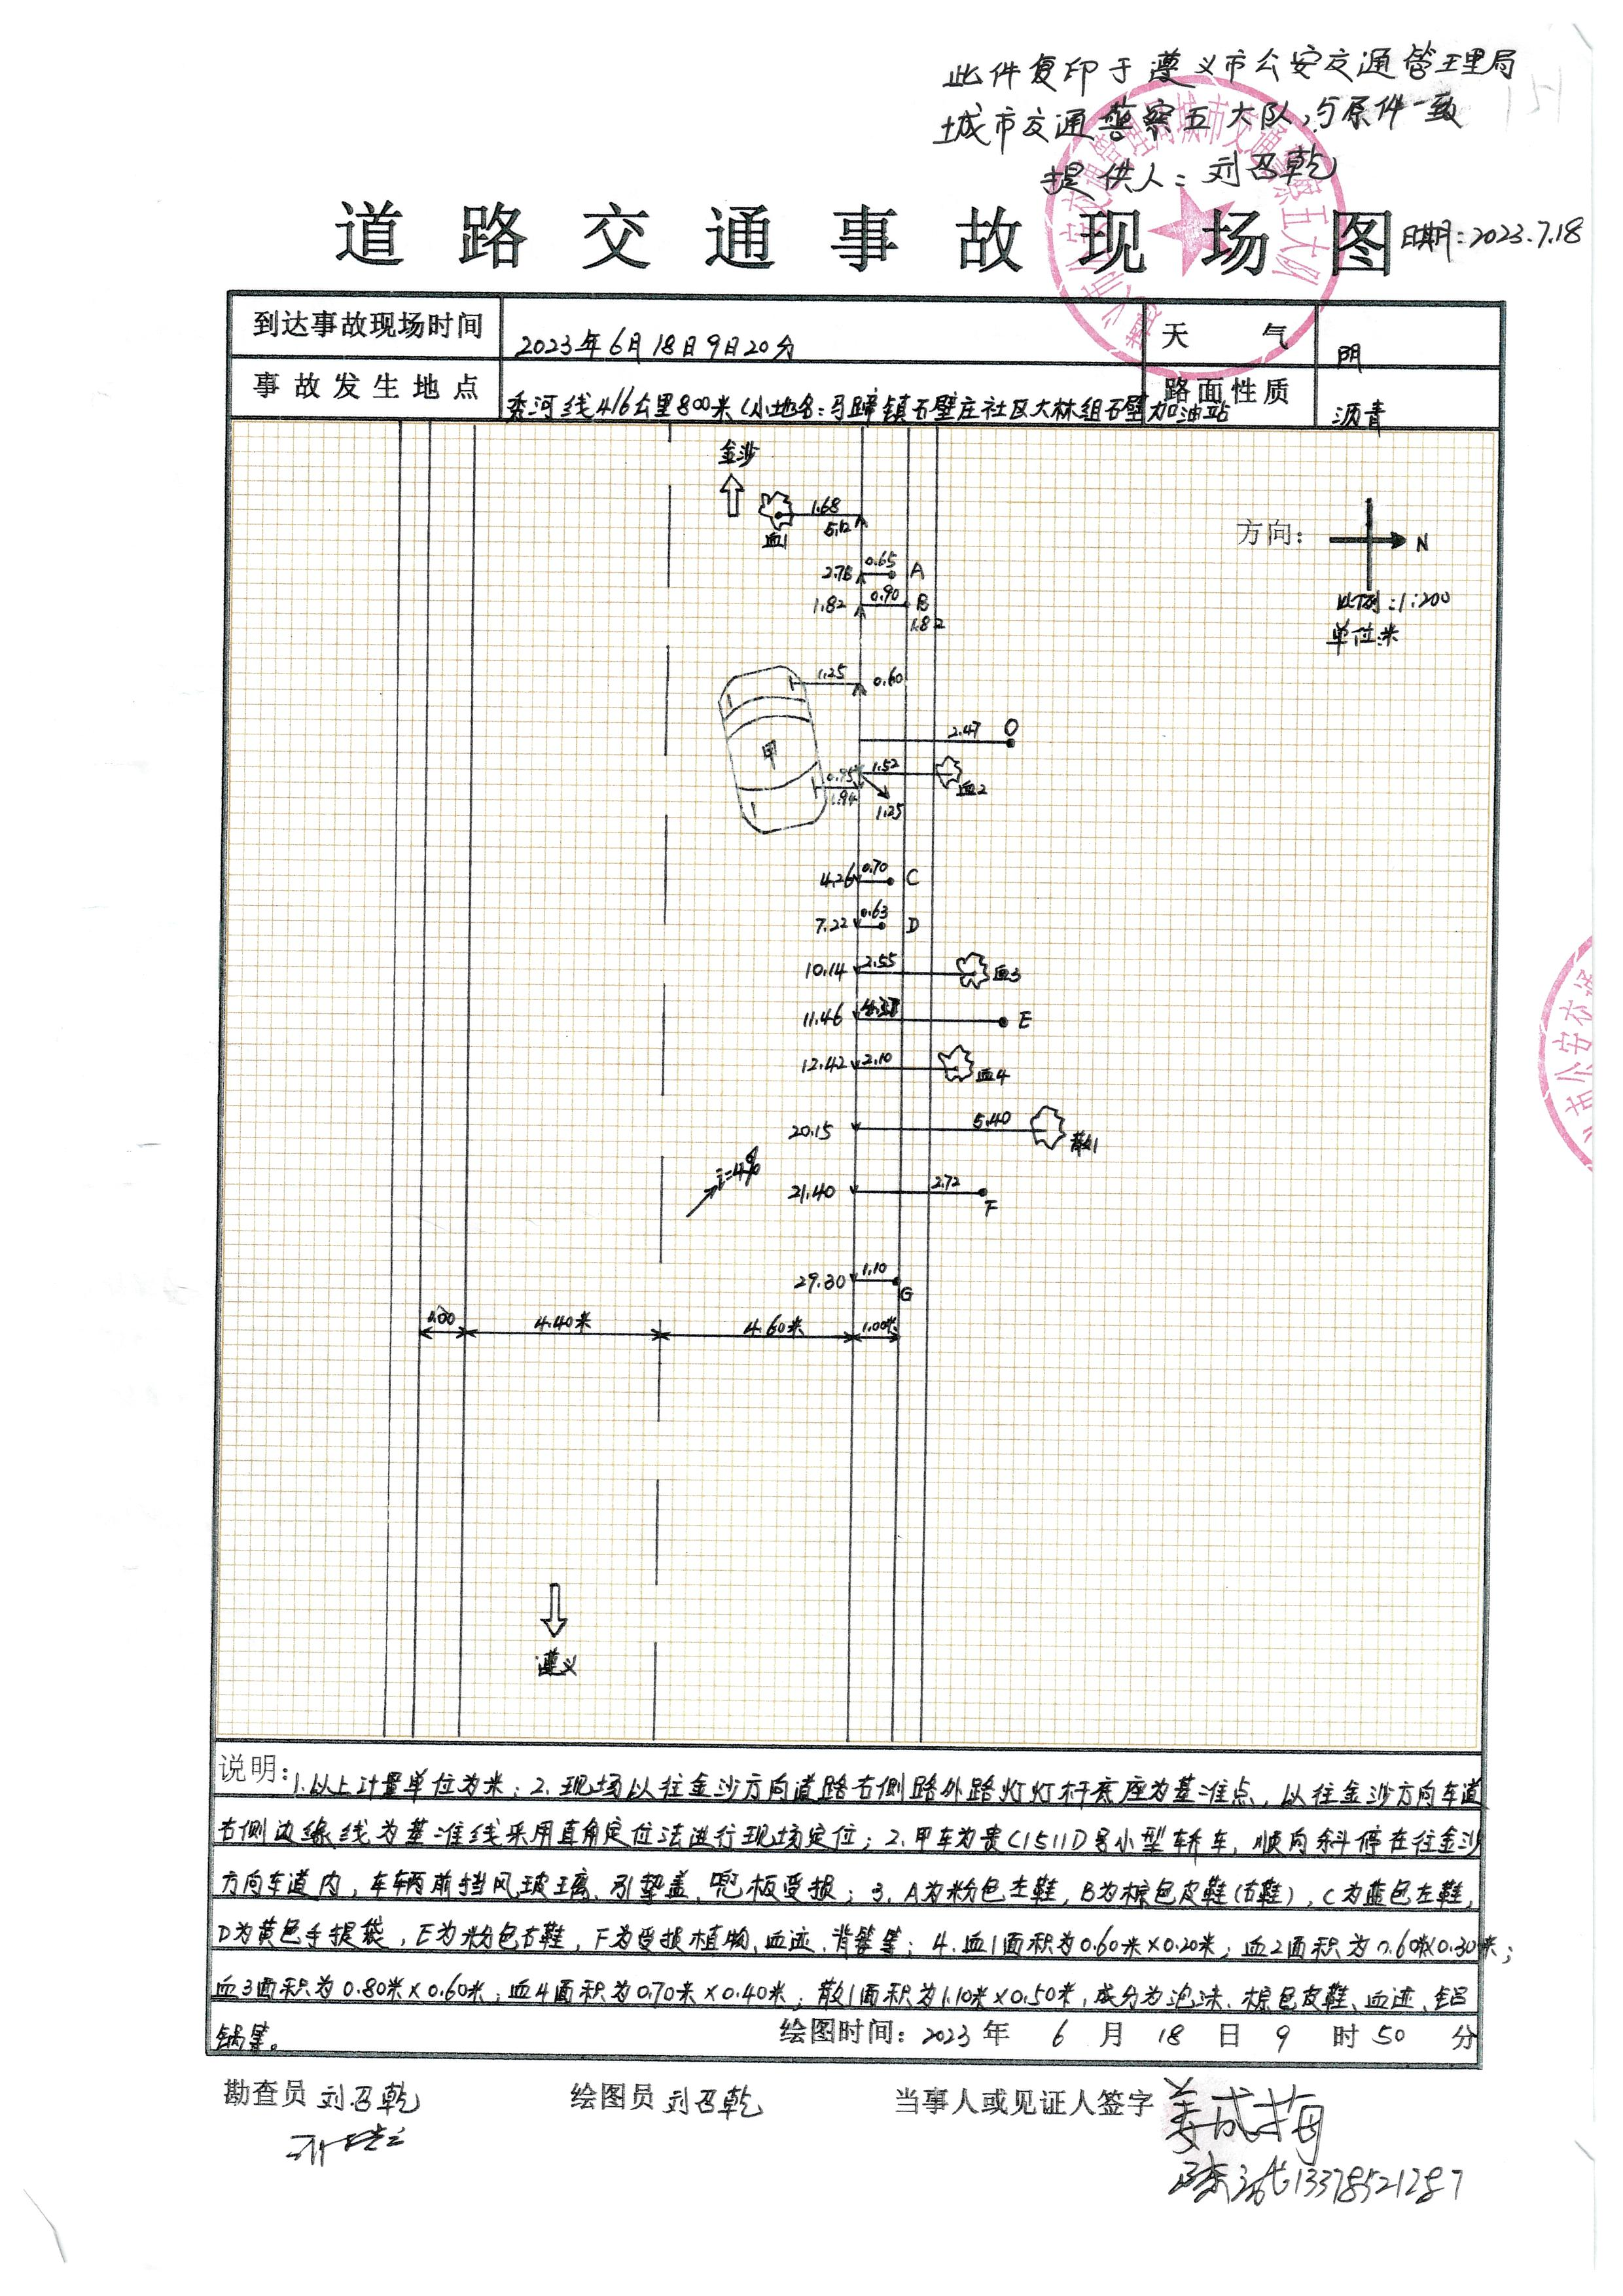 此件复印于遵义市公安交通管理局
城市交通警察五大队,与原件一致
提供人:刘召乾
道路交通事故现场图
日期:2023.7.18
到达事故现场时间 2023年6月18日9日20分 天气 阴
事故发生地点 秀河线416公里800米(小地名:马蹄镇石壁庄社区大林组石壁加油站 路面性质 沥青
金沙
血1 1.68
5.12
方向: N
2.78 0.65 A
1.82 0.90 B
1.82
比例:1:200
单位:米
1.25 0.60
2.47 O
甲
0.95 1.52 血2
1.94 1.25
4.26 0.70 C
7.22 0.63 D
10.14 2.55 血3
11.46 E
12.42 2.10 血4
20.15 5.40 散1
i=4%
21.40 2.72 F
29.30 1.10 G
4.40米 4.60米 1.00米
遵义
说明:1.以上计量单位为米;2.现场以往金沙方向道路右侧路外路灯灯杆底座为基准点,以往金沙方向车道
右侧边缘线为基准线采用直角定位法进行现场定位;2.甲车为贵C1511D号小型轿车,顺向斜停在往金沙
方向车道内,车辆前挡风玻璃、引擎盖、兜板受损;3.A为粉色左鞋,B为棕色皮鞋(右鞋),C为蓝色左鞋,
D为黄色手提袋,E为粉色右鞋,F为受损植物、血迹、背篓等;4.血1面积为0.60米×0.20米;血2面积为0.60米×0.30米;
血3面积为0.80米×0.60米;血4面积为0.70米×0.40米;散1面积为1.10米×0.50米,成分为泡沫、棕色皮鞋、血迹、铝
锅等。
绘图时间:2023年6月18日9时50分
勘查员 刘召乾 绘图员 刘召乾 当事人或见证人签字 姜成梅
13378521287